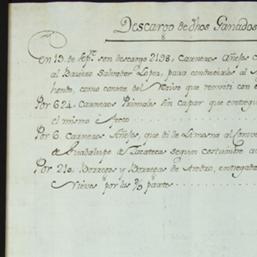 Descargo de dhos Ganados
En 19 de Sep.e son descargo 2198. Carneros Añejos
al Baciero Salvador Lopez, para conducirlos al
como consta del Recivo que remiti con
Por 624. Carneros Primales sin capar que entregue
el mismo
Por 6. Carneros Añejos, que di de Limosna al
de Guadalupe de Zacatecas segun costumbre
Por 210. Borregos y Borregas de entregados
Nieves por los